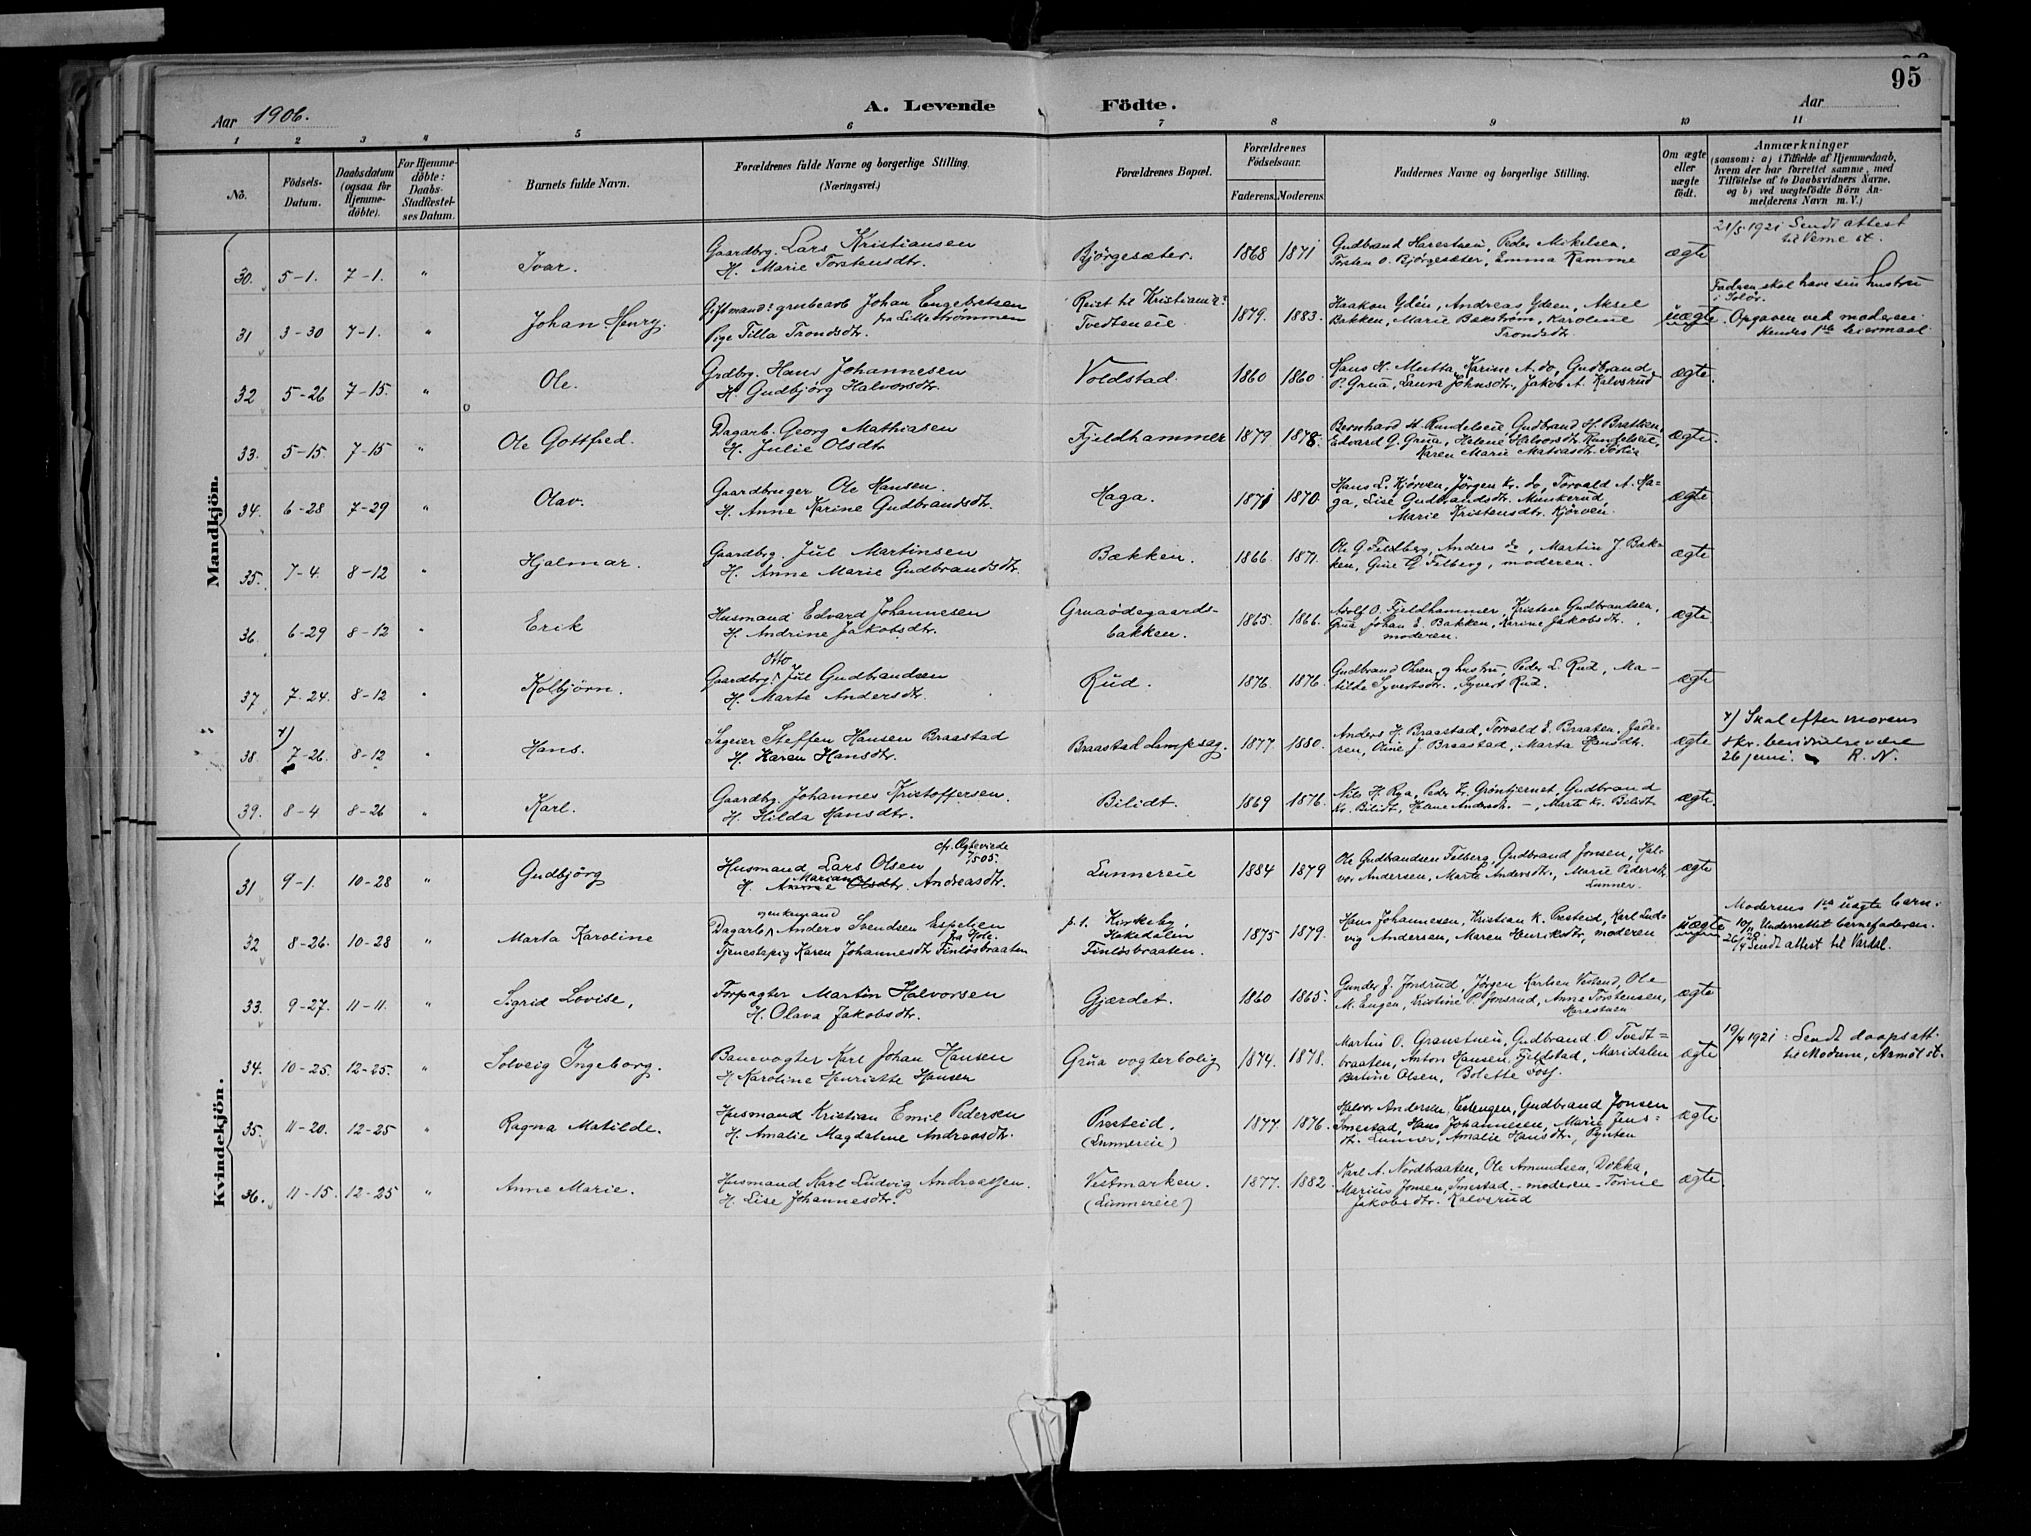 95
Aar 1906.
A. Levende Födte.
Aar
1 2 3 4 5 6 7 8 9 10 11
No.
Födsels-Datum.
Daabsdatum (ogsaa for Hjemmedöbte).
For Hjemmedöbte: Daabs-Stadfæstelses Datum.
Barnets fulde Navn.
Forældrenes fulde Navne og borgerlige Stilling. (Næringsvei.)
Forældrenes Bopæl.
Forældrenes Födselsaar.
Faderens. Moderens.
Faddernes Navne og borgerlige Stilling.
Om ægte eller uægte födt.
Anmærkninger
(saasom: a) i Tilfælde af Hjemmedaab, hvem der har forrettet samme, med Tilföielse af to Daabsvidners Navne, og b) ved uægtefödte Börn Anmelderens Navn m. V.)
Mandkjön.
30. 5-1. 7-1. " Ivar.
Gaardbrg. Lars Kristiansen
H. Marie Torstensdtr.
Bjørgesæter. 1868 1871
Gudbrand Harestuen, Peder Mikelsen,
Torsten O. Bjørgesæter, Emma Ramme
ægte
21/5 1921 Sendt attest
til Verne st.
31 3-30 7-1. " Johan Henry.
Giftmand: grubearb Johan Engebretsen
fra Lillestrømmen
Pige Tilla Trondsdtr.
Reist til Kristiania:
Tvedteneie 1879. 1883.
Haakon Ydén, Andreas Ydeen, Aksel
Bakken, Marie Bækstrøm, Karoline
Trondsdtr
uægte.
Fadren skal have sin hustru
i Solør.
Opgaven ved moderen:
Hendes 1ste leiermaal
32 5-26 7-15. " Ole.
Grdbrg. Hans Johannesen
H. Gudbjørg Halvorsdtr.
Voldstad. 1860 1860.
Hans H. Mutta, Karine A. do, Gudbrand
P. Grua, Laura Johnsdtr, Jakob A. Kalvsrud
ægte.
33. 5-15. 7-15 " Ole Gottfred.
Dagarb. Georg Mathiasen
H. Julie Olsdtr
Fjeldhammer 1879 1878.
Bernhard H. Rundeleie Gudbrand H. Bratken,
Edvard G. Grua, Helene Halvorsdtr. Rundeleie,
Karen Marie Matiasdtr.
ægte.
34. 6-28 7-29 " Olav.
Gaardbruger Ole Hansen.
H. Anne Karine Gudbrandsdtr.
Haga. 1871 1870.
Hans L. Kjørven, Jørgen Kr. do, Torvald A. Ha-
ga, Lise Gudbrandsdtr. Munkerud,
Marie Kristensdtr. Kjørven.
ægte
35. 7-4. 8-12 " Hjalmar.
Gaardbrg. Jul Martinsen
H. Anne Marie Gudbrandsdtr.
Bækken. 1866 1871.
Ole G Feldberg, Anders do, Martin J. Bæk-
ken, Gine G Felberg, moderen.
ægte
36. 6-29 8-12 " Erik
Husmand Edvard Johannesen
H. Andrine Jakobsdtr.
Gruaødegaards-
bakken. 1865. 1866.
Adolf O. Fjeldhammer, Kristen Gudbrandsen,
Grua Johan E. Bakken, Karine Jakobsdtr.,
moderen.
ægte
37 7-24. 8-12 " Kolbjørn.
Otto
Gaardbrg. Jul Gudbrandsen
H. Marte Andersdtr.
Rud. 1876. 1876.
Gudbrand Ohren og hustru, Peder L. Rud, Ma-
tilde Syvertsdtr., Syvert Rud.
ægte
38. 4) 7-26. 8-12 " Hans.
Sageier Steffen Hansen Braastad
H. Karen Hansdtr.
Braastad Dampsag. 1877. 1880.
Anders H. Braastad, Torvald E. Braaten, fade-
ren, Oline J. Braastad, Marta Hansdtr.
ægte
4) Skal efter morens
skr. bevidnelse være
26 juni. R. N.
39. 8-4 8-26 " Karl.
Gaardbg. Johannes Kristoffersen.
H. Hilda Hansdtr.
Bilidt. 1869 1876.
Nils H. Rya, Peder Kr. Grøntjernet, Gudbrand
Kr. Bilidt, Helene Andersdtr. -, Marte Kr. Bilidt
ægte
Kvindekjön.
31 9-1. 10-28 " Gudbjörg
cfr. Ægteviede
7/505.
Husmand Lars Olsen
Mariane
H. Anne Olsdtr. Andreasdtr.
Lunnereie 1884 1879
Ole Gudbrandsen Felberg, Gudbrand Jonsen, Hal-
vor Andersen, Marte Andersdtr., Marie Pedersdtr
Lunner.
ægte
32 8-26. 10-28 " Marta Karoline
ungkarmand
Dagarb. Anders Svendsen Espelien
fra Hole.
Tjenestepig Karen Johannesdtr Finlösbraaten
p. t. Kirkeby,
Hakedalen
Finlösbraaten. 1875 1879.
Hans Johannesen, Kristian K. Presteid, Karl Lud-
vig Andersen, Maren Henriksdtr, moderen
uægte
Moderens 1ste uægte barn.
10/11 Underrettet barnefaderen.
26/4 20 Sendt attest til Vardal.
33. 9-27. 11-11. " Sigrid Lovise,
Forpagter Martin Halvorsen
H. Olava Jakobsdtr.
Gjærdet. 1860 1865.
Gunder J. Jonsrud, Jørgen Karlsen Vestend, Ole
M. Engen, Kristine P. Jonsrud, Anne Torstensen,
Harestuen
ægte
34. 10-25. 12-25. " Solveig Ingeborg.
Banevogter Karl Johan Hansen
H Karoline Henriette Hansen
Grua vogterbolig 1874. 1878.
Martius O. Granstuen, Gudbrand O Tvedt=
braaten, Anton Hansen, Fjeldstad, Maridalen
Bertine Olsen, Bolette
ægte
19/4 1921: Sendt daapsatt.
til Modum, Aamot st.
35. 11-20. 12-25 " Ragna Matilde.
Husmand Kristian Emil Pedersen
H. Amalie Magdalene Andreasdtr.
Presteid.
(Lunnereie) 1877 1876.
Halvor Andersen Vestengen, Gudbrand Jonsen
Smestad, Hans Johannesen, Marie Jens-
dtr. Lunner, Amalie Hansdtr, Pynten
ægte
36. 11-15. 12-25 " Anne Marie.
Husmand Karl Ludvig Andreassen.
H. Lise Johannesdtr.
Vestmarken.
(Lunnereie) 1877. 1882.
Karl A. Nordbraaten, Ole Amundsen, Dokka,
Marius Jonsen, Smestad, - moderen - Torine
Jakobsdtr. Kalvsrud
ægte